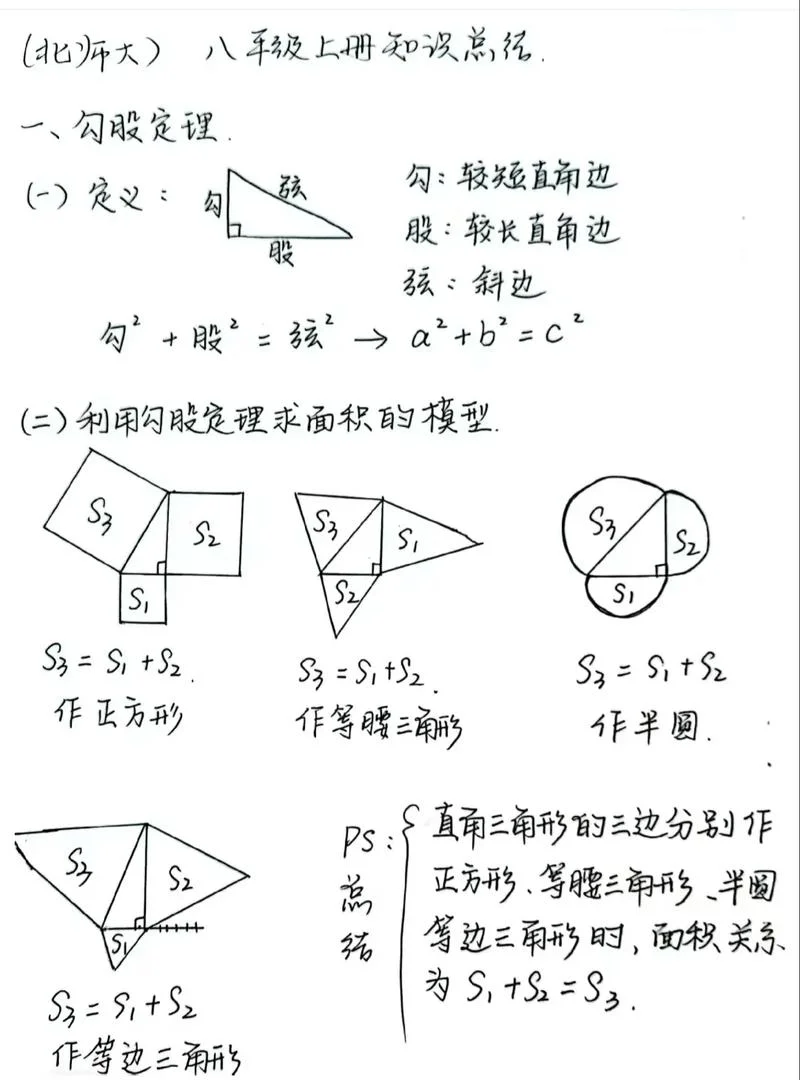 (北师大) 八年级上册知识总结.
一、勾股定理.
(一) 定义:
勾
弦
股
勾: 较短直角边
股: 较长直角边
弦: 斜边
勾² + 股² = 弦² → a² + b² = c²
(二) 利用勾股定理求面积的模型.
S₃ S₂ S₁
S₃ S₁ S₂
S₃ S₂ S₁
S₃ = S₁ + S₂.
作正方形
S₃ = S₁ + S₂.
作等腰三角形
S₃ = S₁ + S₂
作半圆.
S₃ S₂ S₁
S₃ = S₁ + S₂
作等边三角形
PS:
总
结
直角三角形的三边分别作
正方形、等腰三角形、半圆
等边三角形时, 面积关系
为 S₁ + S₂ = S₃.